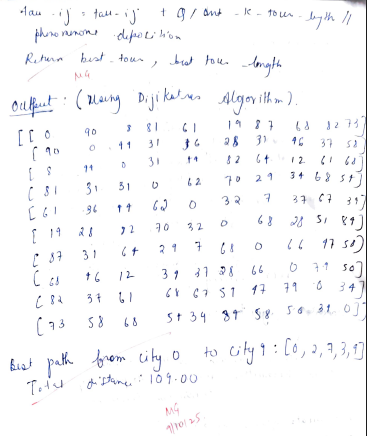 tau-ij = tau-ij + Q / ant-k-tour-length //
phenomenone deposition
Return best-tour, best tour-length
MG
Output: (Using Dijikstras Algorithm).
[[0 90 8 81 61 19 87 68 82 73]
[90 0 99 31 36 28 31 46 37 58]
[8 99 0 31 99 82 64 12 61 68]
[81 31 31 0 62 70 29 39 68 54]
[61 36 99 62 0 32 7 37 67 39]
[19 28 82 70 32 0 68 28 51 89]
[87 31 64 29 7 68 0 66 97 58]
[68 46 12 39 37 28 66 0 79 50]
[82 37 61 68 67 51 97 79 0 34]
[73 58 68 54 39 89 58 50 34 0]]
Best path from city 0 to city 9: [0, 2, 7, 3, 9]
Total distance: 109.00
MG
9/10/25